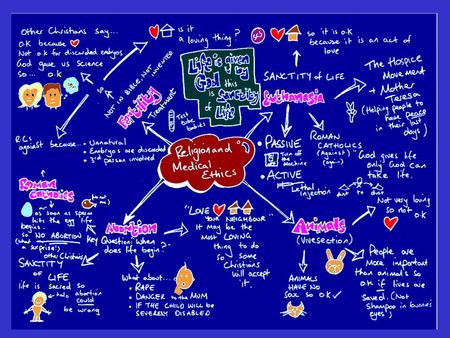 Other Christians say...
OK because
Not OK for discarded embryos
God gave us Science
so... O.K
is it
a loving thing?
so NOT IN BIBLE. NOT INVENTED
Fertility
Treatment
Test
tube
babies
R.C.s
against because...
• Unnatural
• Embryos are discarded
• 3rd person involved
Life is given
by
God
this is
Sanctity
of
Life
so it is OK
because it is an act of
love
SANCTITY of LIFE
Euthanasia
The Hospice
Movement
+ Mother
Teresa
(Helping people to
have peace
in their last
days)
• PASSIVE
Turn off
the
machine
• ACTIVE
Lethal
injection
ROMAN
CATHOLICS
(Against)
(again)
"God gives life
only God can
take life.
Religion and
Medical
Ethics
Roman
Catholics
as soon as sperm
hits the egg life
begins.
so NO ABORTION
(what
a surprise!)
other Christians
SANCTITY
OF
LIFE
life is sacred so
abortion
could
be wrong
Abortion
Key Question: When
does life begin?
What about...
• RAPE
• DANGER to the MUM
• IF THE CHILD WILL BE
SEVERELY DISABLED
"LOVE
YOUR NEIGHBOUR"
It may be the
most LOVING
thing to do
so some
Christians
will accept
it.
Animals
(Vivisection)
Not very loving
so not OK
ANIMALS
HAVE NO
SOUL so OK
People are
more important
than animals so
OK if lives are
saved. (Not
Shampoo in bunnies
eyes)